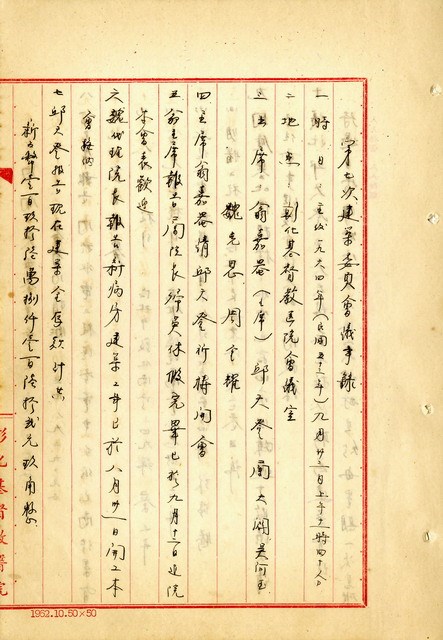 第七次建築委員會議事錄
一 時日 主後一九六四年(民國五十三年)九月廿三日上午十時四十分
二 地点:彰化基督教医院會議室
三 出席 翁嘉器(主席) 邱天登 蘭大弼 吳河玉
魏克恩 周金耀
四 主席翁嘉器請邱天登祈禱開會
五 翁主席報告蘭院長綷員休假完畢已於九月十一日返院
本會表歡迎
六 魏代理院長報告新病房建築工事已於八月卅一日開工本
會接納
七 邱天登報告現在建築金存款計共
新台幣壹百玖拾陸萬捌仟壹百陸拾弍元玖角整
彰化基督教醫院
1962.10.50×50